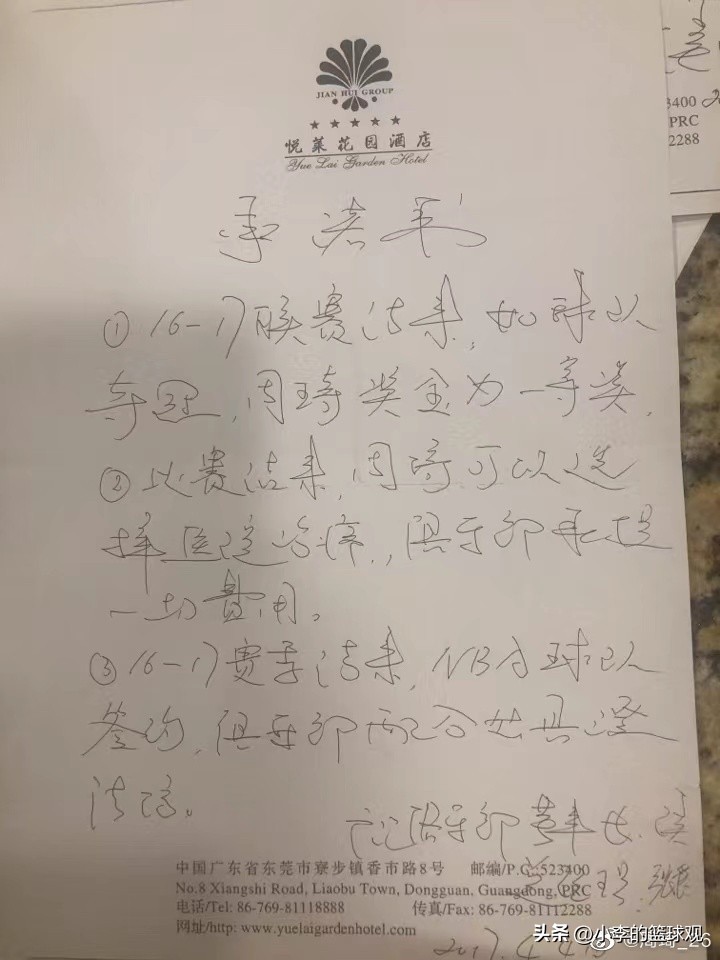 JIAN HUI GROUP
★★★★★
悦莱花园酒店
Yue Lai Garden Hotel
3400
PRC
2288
承诺书
① 16-17联赛结束,如球队
夺冠,周琦奖金为一等奖,
② 比赛结束,周琦可以选
择医院治疗,俱乐部承担
一切费用。
③ 16-17赛季结束,NBA球队
签约,俱乐部配合出具澄
清信。
俱乐部
中国广东省东莞市寮步镇香市路8号 邮编/P.C.:523400
No.8 Xiangshi Road, Liaobu Town, Dongguan, Guangdong, PRC
电话/Tel: 86-769-81118888 传真/Fax: 86-769-81112288
网址/http: www.yuelaigardenhotel.com
2017.4.4
头条 @小李的篮球观
@周琦_26